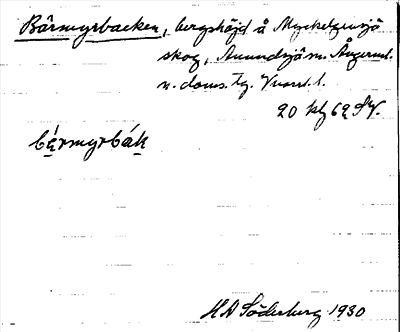 Bärmyrbacken, bergshöjd å Myckelgensjö
skog, Anundsjö sn. Ångerml.
n. doms. tg. Vnorrl. l.
20 kl 62 SV.
bærmyrbák
H A Söderberg 1930